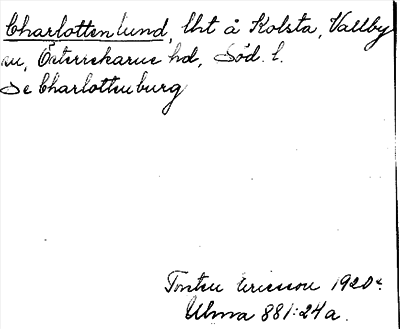 Charlottenlund, lht å Kolsta, Vallby
sn, Österrekarne hd, Söd. l.
Se Charlottenburg
Torsten Ericsson 1920
Ulma 881:24a.